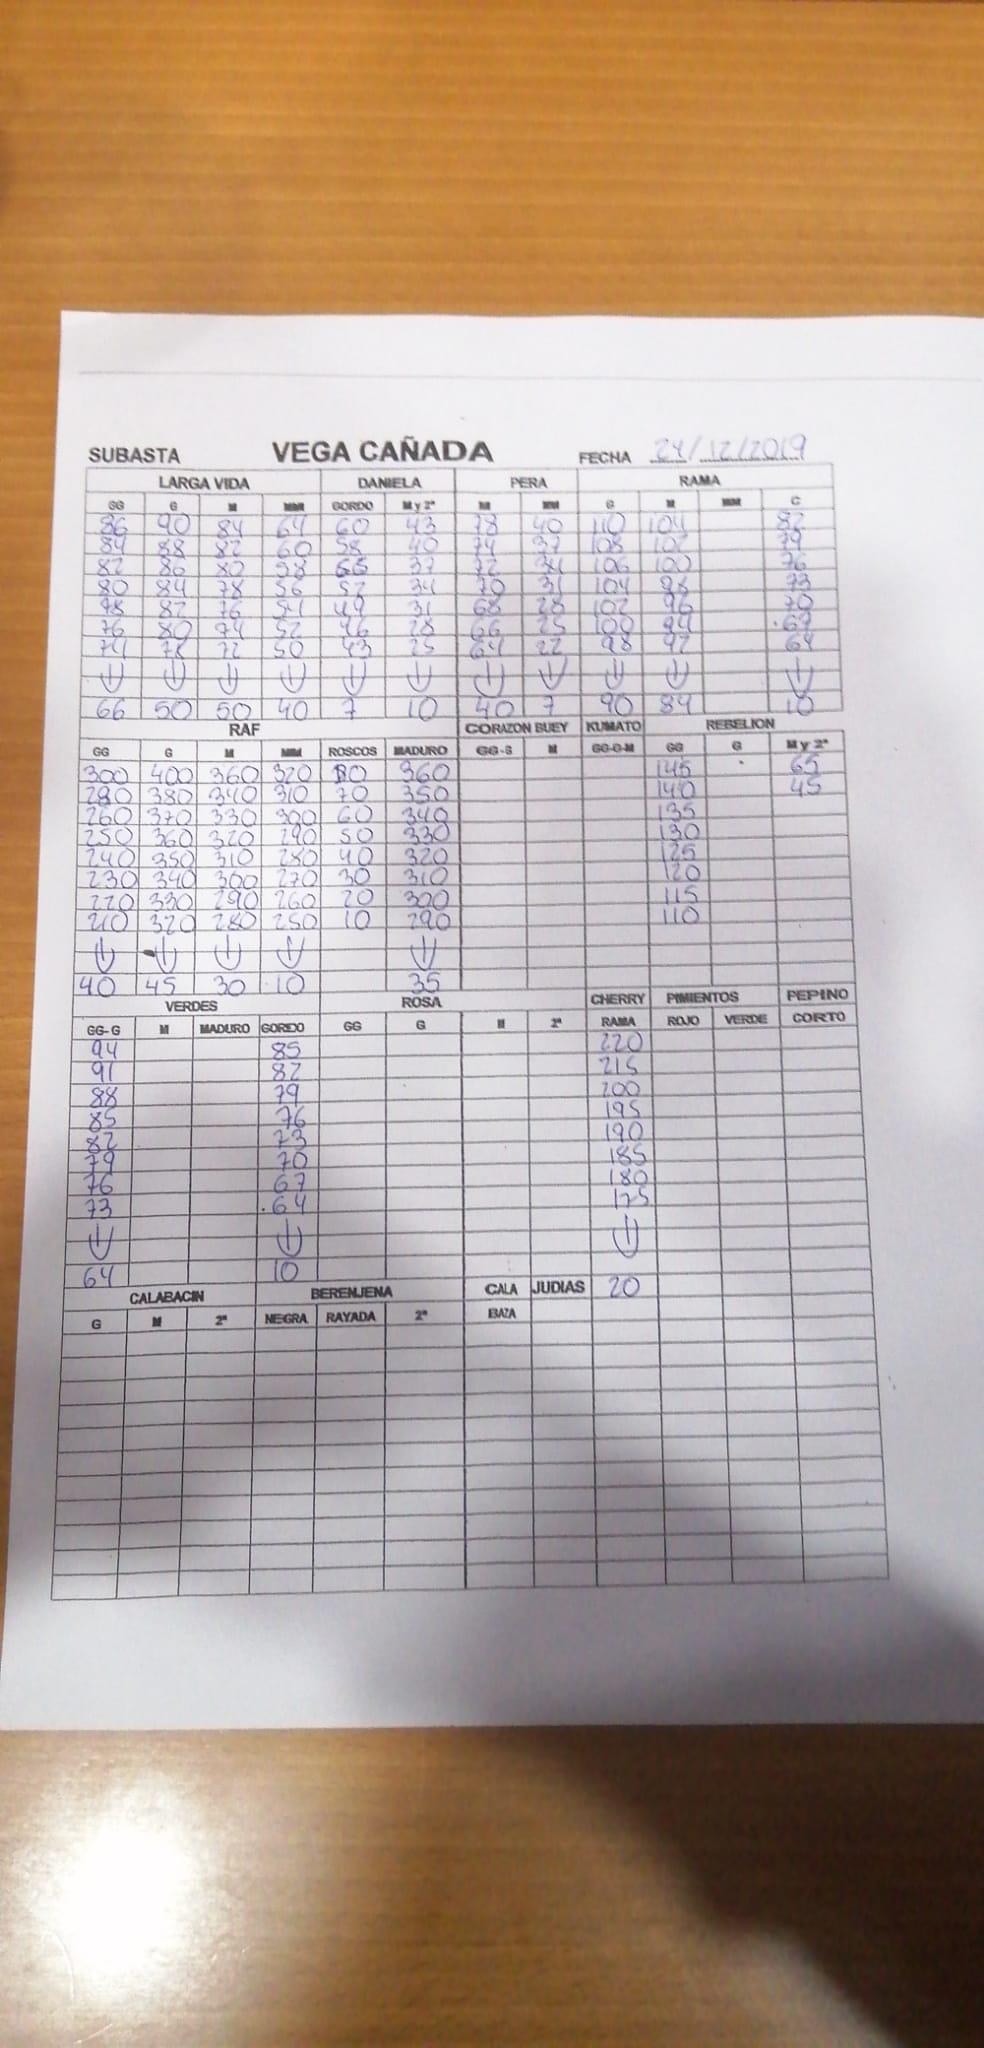 SUBASTA VEGA CAÑADA FECHA 24/12/2019
LARGA VIDA DANIELA PERA RAMA
GG G M MM GORDO M y 2ª M MM G M MM C
86 90 84 64 60 43 78 40 110 104 82
84 88 82 60 58 40 74 37 108 102 79
82 86 80 58 55 37 72 34 106 100 76
80 84 78 56 52 34 70 31 104 98 73
78 82 76 54 49 31 68 28 102 96 70
76 80 74 52 46 28 66 25 100 94 67
74 78 72 50 43 25 64 22 98 92 64
66 50 50 40 7 10 40 7 90 84 10
RAF CORAZON BUEY KUMATO REBELION
GG G M MM ROSCOS MADURO GG-G M GG-G-M GG G M y 2ª
300 400 360 320 80 360 145 65
280 380 340 310 70 350 140 45
260 370 330 300 60 340 135
250 360 320 290 50 330 130
240 350 310 280 40 320 125
230 340 300 270 30 310 120
220 330 290 260 20 300 115
210 320 280 250 10 290 110
40 45 30 10 35
VERDES ROSA CHERRY PIMIENTOS PEPINO
GG-G M MADURO GORDO GG G M 2ª RAMA ROJO VERDE CORTO
94 85 220
91 82 215
88 79 200
85 76 195
82 73 190
79 70 185
76 67 180
73 64 175
64 10
CALABACIN BERENJENA CALA JUDIAS 20
G M 2ª NEGRA RAYADA 2ª BAZA